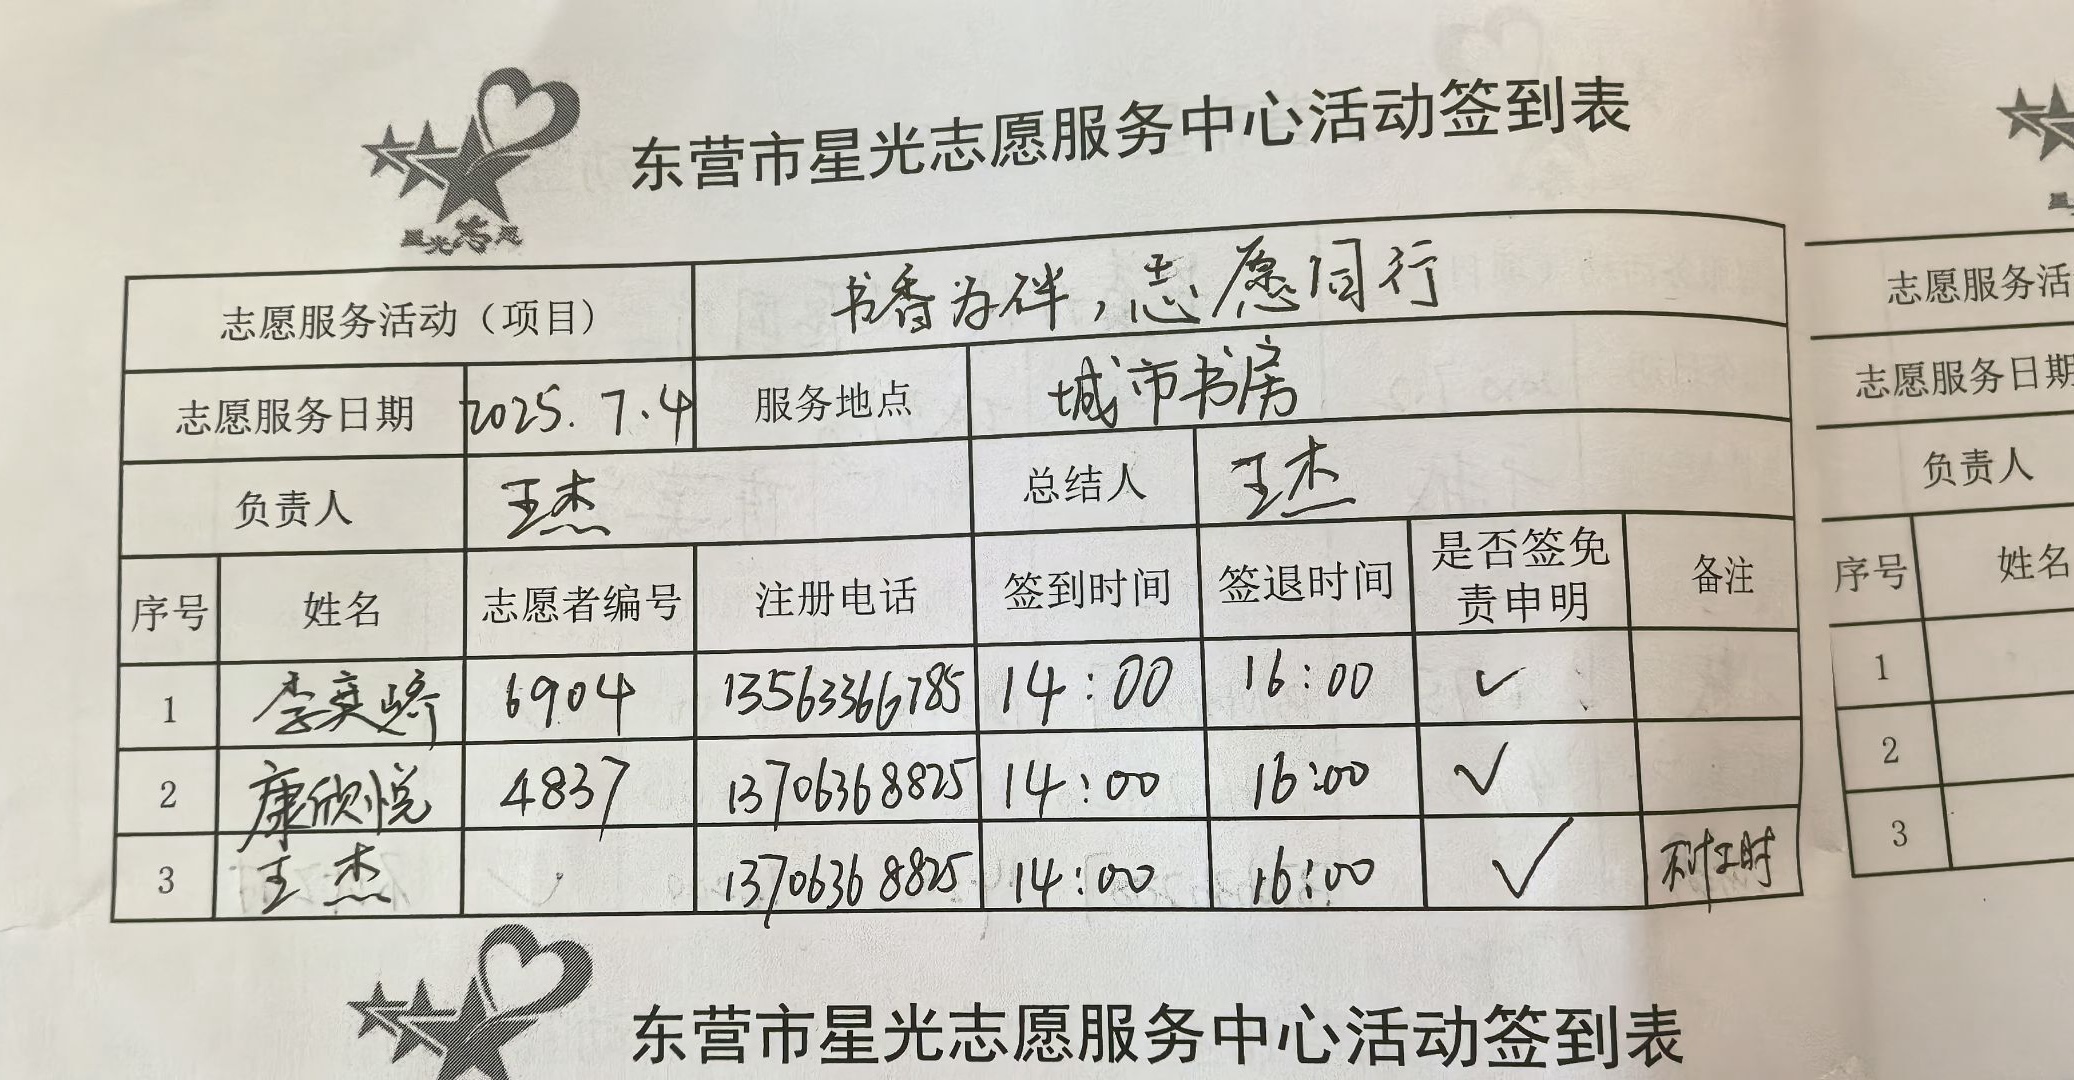 东营市星光志愿服务中心活动签到表
星光志愿
志愿服务活动（项目） 书香为伴，志愿同行
志愿服务日期 2025.7.4 服务地点 城市书房
负责人 王杰 总结人 王杰
序号 姓名 志愿者编号 注册电话 签到时间 签退时间 是否签免责申明 备注
1 李奕崤 6904 13563366785 14:00 16:00 ✓
2 康欣悦 4837 13706368825 14:00 16:00 ✓
3 王杰 13706368825 14:00 16:00 ✓ 不计工时
东营市星光志愿服务中心活动签到表
星
志愿服务活
志愿服务日期
负责人
序号 姓名
1
2
3